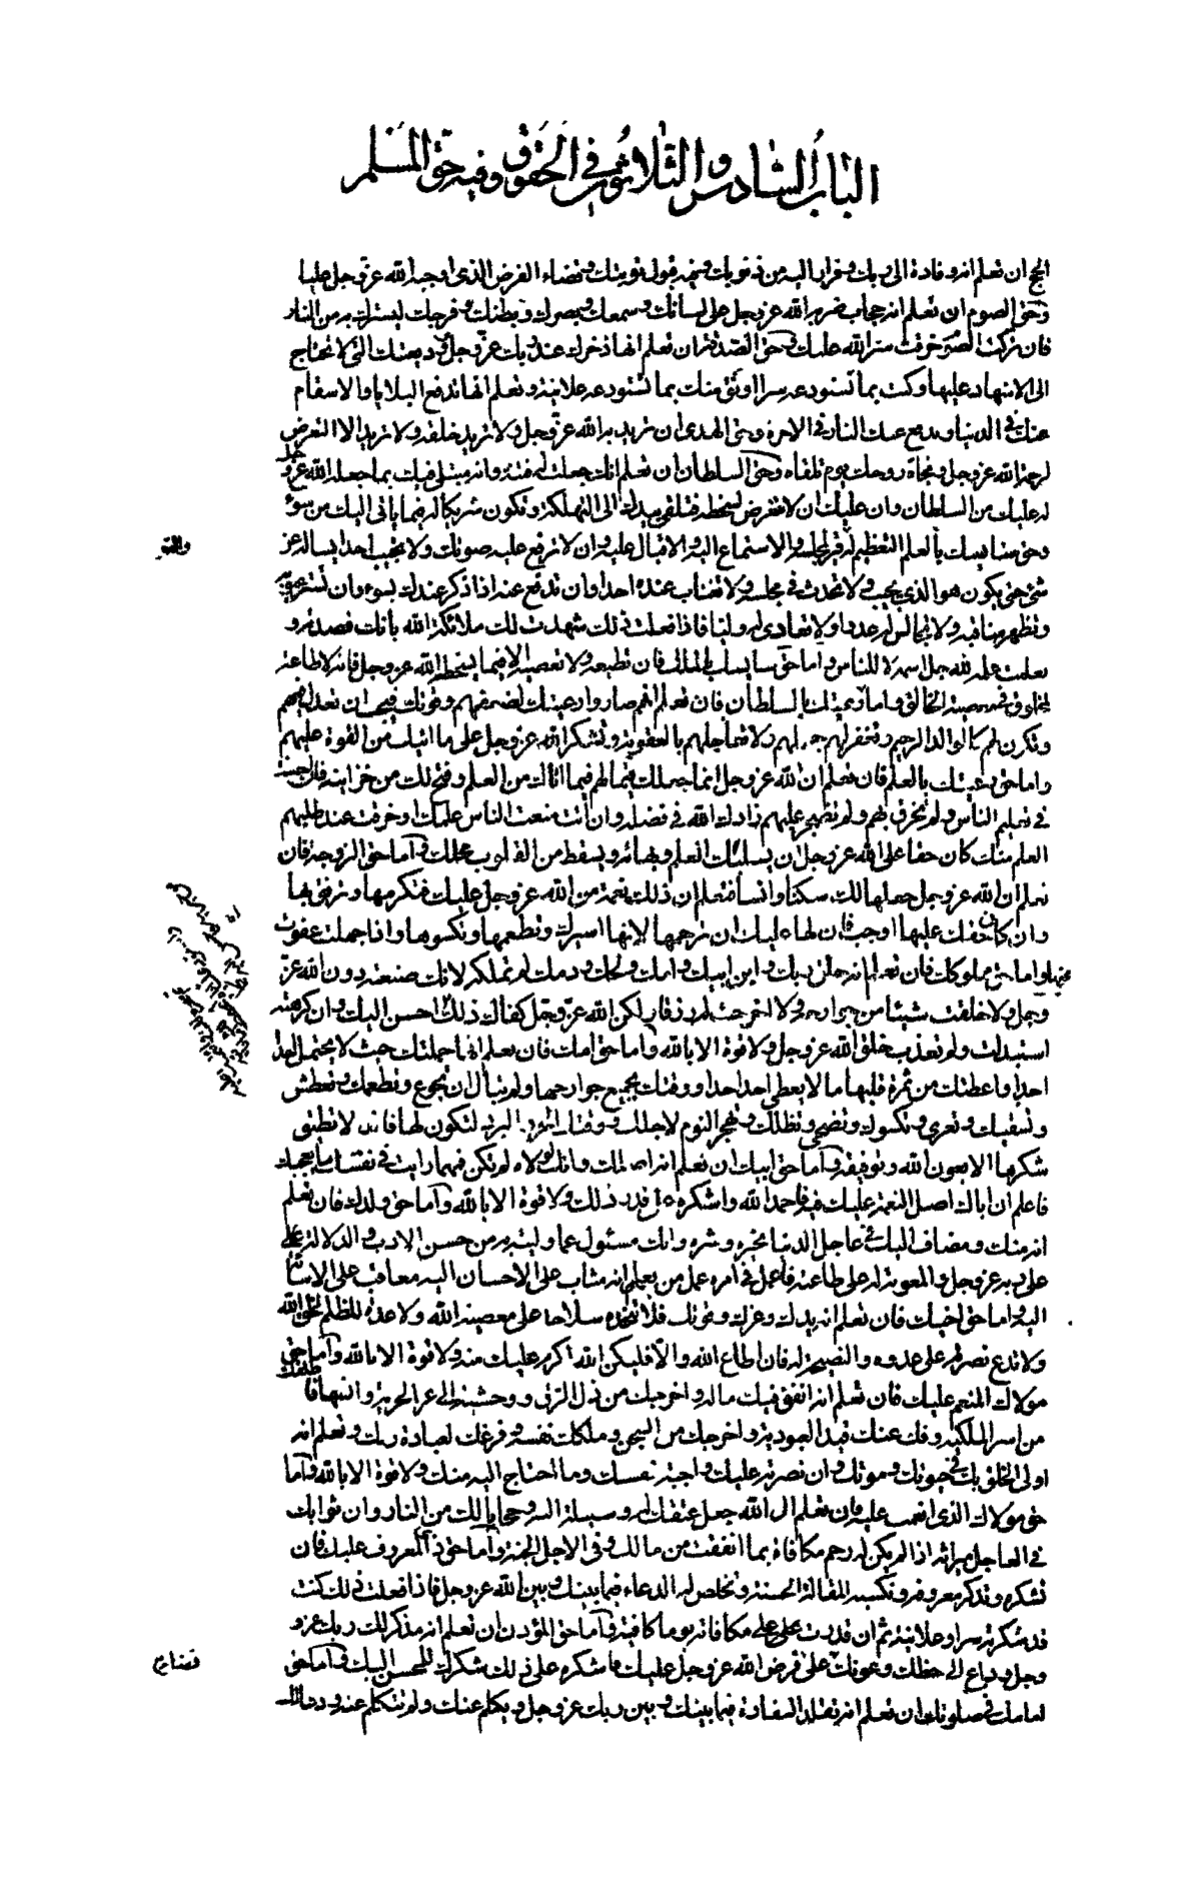 الباب السادس والثلاثون في الحقوق وفيه حق المسلم
الحج ان تعلم انه وفادة الى ربك وفرار اليه من ذنوبك وفيه قبول توبتك وقضاء الفرض الذى اوجبه الله عز وجل عليك
وحق الصوم ان تعلم انه حجاب ضربه الله عز وجل على لسانك وسمعك وبصرك وبطنك وفرجك ليسترك به من النار
فان تركت الصوم خرقت ستر الله عليك وحق الصدقة ان تعلم انها ذخرك عند ربك عز وجل وديعتك التى لا تحتاج
الى الاشهاد عليها وكنت بما تستودعه سرا اوثق منك بما تستودعه علانية وتعلم انها تدفع البلايا والاسقام
عنك في الدنيا وتدفع عنك النار في الاخرة وحق الهدى ان تريد به الله عز وجل ولا تريد خلقه ولا تريد الا التعرض
لرحمة الله عز وجل ونجاة روحك يوم تلقاه وحق السلطان ان تعلم انك جعلت له فتنة وانه مبتلى فيك بما جعله الله عز وجل
له عليك من السلطان وان عليك ان لا تتعرض لسخطه فتلقى بيدك الى التهلكة وتكون شريكا له فيما ياتى اليك من سوء
وحق سايسك بالعلم التعظيم له والتوقير لمجلسه والاستماع اليه والاقبال عليه وان لا ترفع عليه صوتك ولا تجيب احدا يساله عن
شئ حتى يكون هو الذى يجيب ولا تحدث في مجلسه ولا تغتاب عنده احدا وان تدفع عنه اذا ذكر عندك بسوء وان تستر عيوبه
وتظهر مناقبه ولا تجالس له عدوا ولا تعادى له وليا فاذا فعلت ذلك شهدت لك ملائكة الله بانك قصدته و
تعلمت علمه لله جل اسمه لا للناس واما حق سايسك بالملك فان تطيعه ولا تعصيه الا فيما يسخط الله عز وجل فانه لا طاعة
لمخلوق في معصية الخالق واما رعيتك بالسلطان فان تعلم انهم صاروا رعيتك لضعفهم وقوتك فيجب ان تعدل فيهم
وتكون لهم كالوالد الرحيم وتغفر لهم جهلهم ولا تعاجلهم بالعقوبة وتشكر الله عز وجل على ما اتيك من القوة عليهم
واما حق رعيتك بالعلم فان تعلم ان الله عز وجل انما جعلك قيما لهم فيما اتاك من العلم وفتح لك من خزاينه فان احسنت
في تعليم الناس ولم تخرق بهم ولم تضجر عليهم زادك الله في فضله وان انت منعت الناس علمك او خرقت عند طلبهم
العلم منك كان حقا على الله عز وجل ان يسلبك العلم وبهائه ويسقط من القلوب محلك واما حق الزوجة فان
تعلم ان الله عز وجل جعلها لك سكنا وانسا فتعلم ان ذلك نعمة من الله عز وجل عليك فتكرمها وترفق بها
وان كان حقك عليها اوجب فان لها عليك ان ترحمها لانها اسيرك وتطعمها وتكسوها واذا جهلت عفوت
عنها واما حق مملوكك فان تعلم انه خلق ربك وابن ابيك وامك ولحمك ودمك لم تملكه لانك صنعته دون الله عز
وجل ولا خلقت شيئا من جوارحه ولا اخرجت له رزقا ولكن الله عز وجل كفاك ذلك احسن اليك وان كرهته
استبدلت ولم تعذب خلق الله عز وجل ولا قوة الا بالله واما حق امك فان تعلم انها حملتك حيث لا يحتمل احد
احدا واعطتك من ثمرة قلبها ما لا يعطى احد احدا ووقتك بجميع جوارحها ولم تبال ان تجوع وتطعمك وتعطش
وتسقيك وتعرى وتكسوك وتضحى وتظلك وتهجر النوم لاجلك ووقتك الحر والبرد لتكون لها فانك لا تطيق
شكرها الا بعون الله وتوفيقه واما حق ابيك ان تعلم انه اصلك وانك لولاه لم تكن فمهما رايت في نفسك ما يعجبك
فاعلم ان اباك اصل النعمة عليك فيه فاحمد الله واشكره على قدر ذلك ولا قوة الا بالله واما حق ولدك فان تعلم
انه منك ومضاف اليك في عاجل الدنيا بخيره وشره وانك مسئول عما وليته به من حسن الادب والدلالة على
على ربه عز وجل والمعونة له على طاعته فاعمل في امره عمل من يعلم انه مثاب على الاحسان اليه معاقب على الاسائة
اليه واما حق اخيك فان تعلم انه يدك وعزك وقوتك فلا تتخذه سلاحا على معصية الله ولا عدة للظلم لخلق الله
ولا تدع نصرته على عدوه والنصيحة له فان اطاع الله والا فليكن الله اكرم عليك منه ولا قوة الا بالله واما حق
مولاك المنعم عليك فان تعلم انه انفق فيك ماله واخرجك من ذل الرق ووحشته الى عز الحرية وانسها فاطلقك
من اسر الملكة وفك عنك قيد العبودية واخرجك من السجن وملكك نفسك وفرغك لعبادة ربك وتعلم انه
اولى الخلق بك في حيوتك وموتك وان نصرته عليك واجبة بنفسك وما احتاج اليه منك ولا قوة الا بالله واما
حق مولاك الذى انعمت عليه فان تعلم ان الله جعل عتقك له وسيلة اليه وحجابا لك من النار وان ثوابك
في العاجل ميراثه اذا لم يكن له رحم مكافاة بما انفقت من مالك وفى الاجل الجنة واما حق ذى المعروف عليك فان
تشكره وتذكر معروفه وتكسبه المقالة الحسنة وتخلص له الدعاء فيما بينك وبين الله عز وجل فاذا فعلت ذلك كنت
قد شكرته سرا وعلانية ثم ان قدرت على مكافاته يوما كافيته واما حق المؤذن ان تعلم انه مذكر لك ربك عز و
وجل وداع الى حظك وعونك على قرض الله عز وجل عليك فاشكره على ذلك شكرك للمحسن اليك واما حق
امامك في صلوتك ان تعلم انه تقلد السفارة فيما بينك وبين ربك عز وجل وتكلم عنك ولم تتكلم عنه ودعا لك